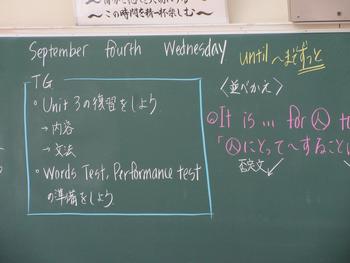 〜この時間を精一杯楽しむ〜
September fourth Wednesday
until〜までずっと
TG
〈並べかえ〉
○Unit 3の復習をしよう
→内容
→文法
○Words Test, Performance test
の準備をしよう
It is ... for 人 t
「人にとって〜することは
否定文